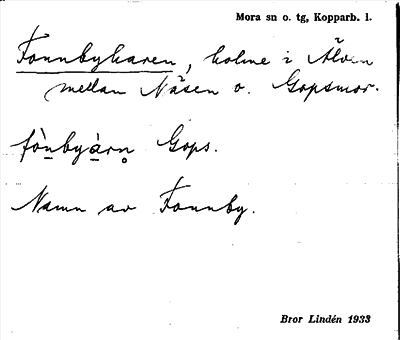 Mora sn o. tg, Kopparb. l.
Fonnbykaren, holme i Älven
mellan Nåsen o. Gopsmor.
fò̱nbyá̱rn̥ Gops.
Namn av Fonnby.
Bror Lindén 1933